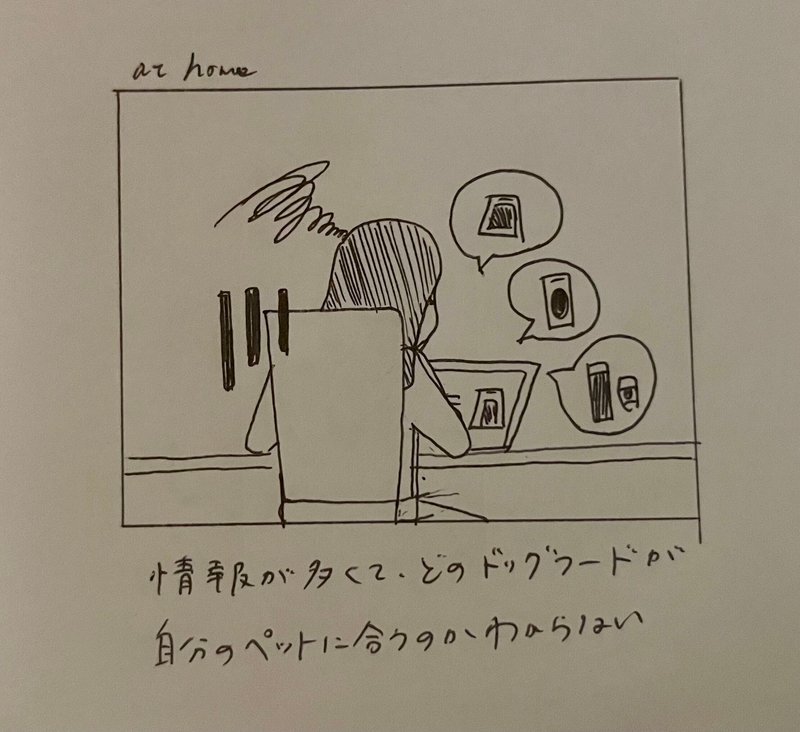 at home
情報が多くて、どのドッグフードが
自分のペットに合うのかわからない